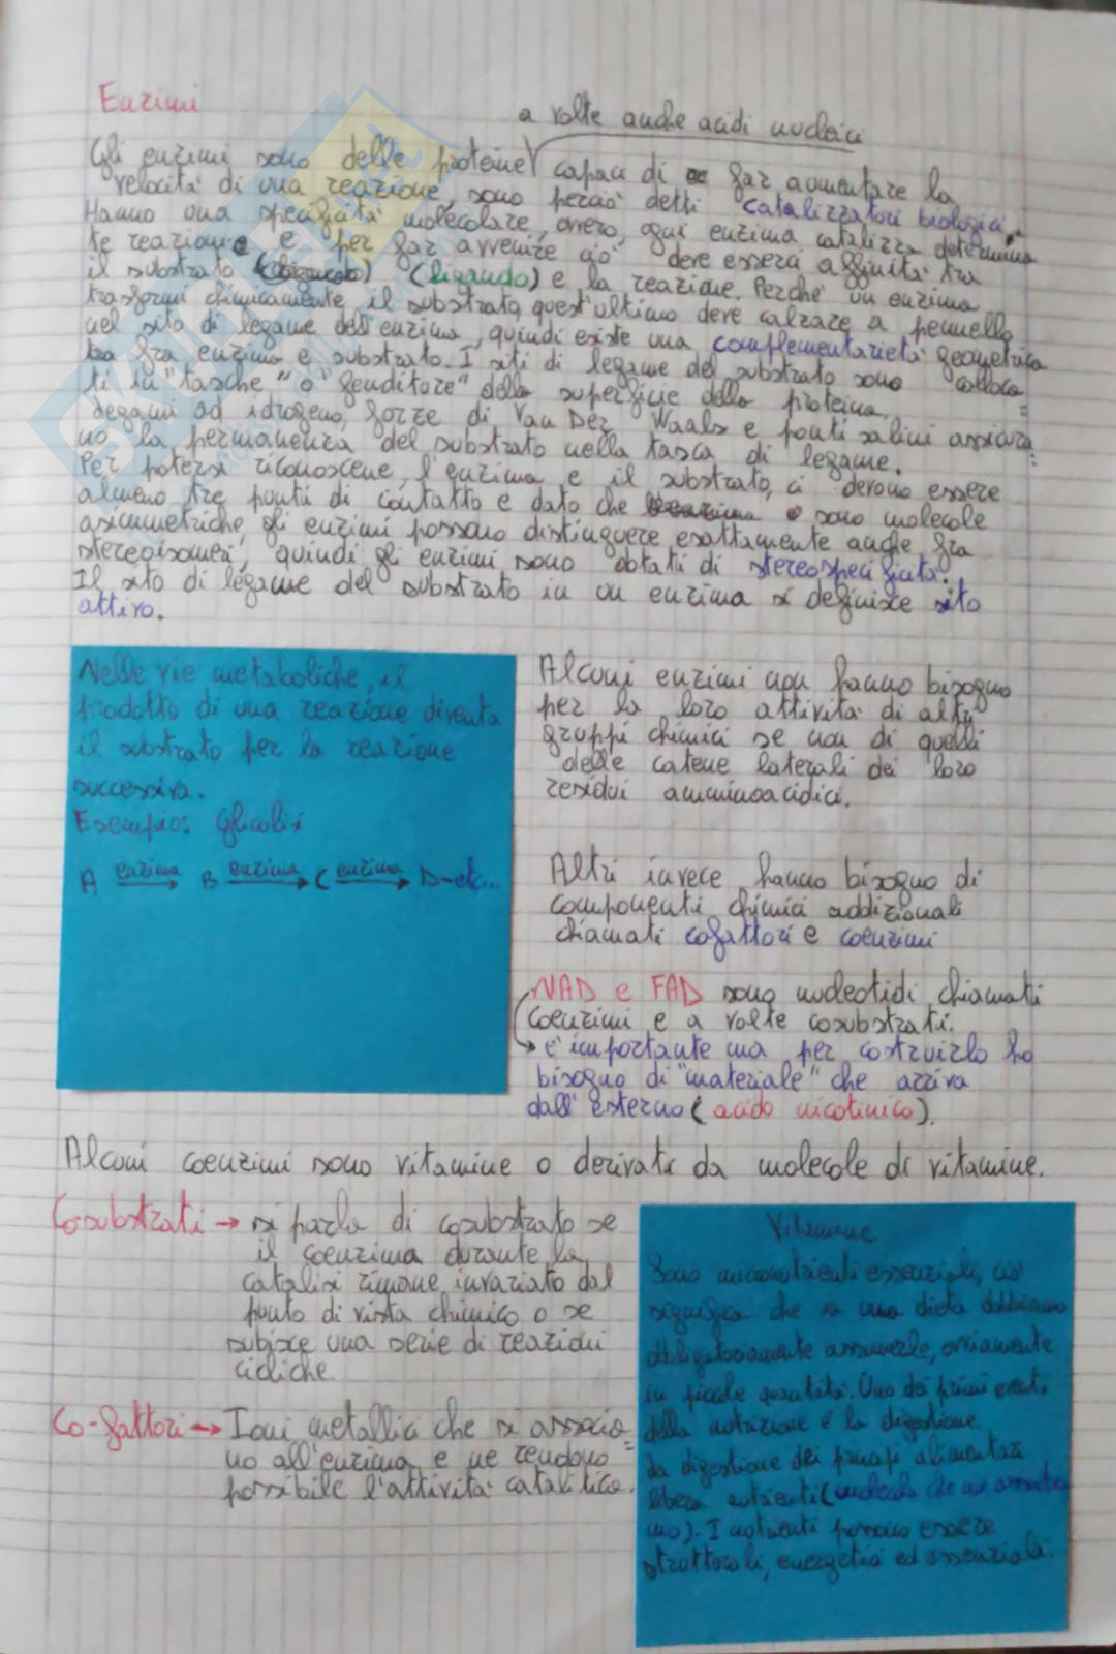 Enzimi
a volte anche acidi nucleici
Gli enzimi sono delle proteine capaci di far aumentare la
velocità di una reazione, sono perciò detti catalizzatori biologici.
Hanno una specificità molecolare, ovvero, ogni enzima catalizza determina
te reazioni e per far avvenire ciò deve esserci affinità tra
il substrato (ligando) e la reazione. Perché un enzima
trasformi chimicamente il substrato, quest'ultimo deve calzare a pennello
nel sito di legame dell'enzima, quindi esiste una complementarietà geometrica
tra fra enzima e substrato. I siti di legame del substrato sono colloca=
ti in "tasche" o "fenditure" della superficie della proteina.
Legami ad idrogeno, forze di Van Der Waals e ponti salini assicura=
no la permanenza del substrato nella tasca di legame.
Per potersi riconoscene, l'enzima e il substrato, ci devono essere
almeno tre punti di contatto e dato che sono molecole
asimmetriche, gli enzimi possono distinguere esattamente anche fra
stereoisomeri, quindi gli enzimi sono dotati di stereospecificità.
Il sito di legame del substrato in un enzima si definisce sito
attivo.
Nelle vie metaboliche, il
prodotto di una reazione diventa
il substrato per la reazione
successiva.
Esempio: Glicolisi
A enzima B enzima C enzima D-etc...
Alcuni enzimi non hanno bisogno
per la loro attività di altri
gruppi chimici se non di quelli
delle catene laterali dei loro
residui amminoacidici.
Altri invece hanno bisogno di
componenti chimici addizionali
chiamati cofattori e coenzimi
NAD e FAD sono nucleotidi chiamati
coenzimi e a volte cosubstrati.
→ è importante ma per costruirlo ho
bisogno di "materiale" che arriva
dall'esterno (acido nicotinico).
Alcuni coenzimi sono vitamine o derivati da molecole di vitamine.
Cosubstrati → si parla di cosubstrato se
il coenzima durante la
catalisi rimane invariato dal
punto di vista chimico o se
subisce una serie di reazioni
cicliche.
Co-fattori → Ioni metallici che si associa=
no all'enzima e ne rendono
possibile l'attività catalitica.
Vitamine
Sono micronutrienti essenziali, ciò
significa che in una dieta dobbiamo
obbligatoriamente assumerle, ovviamente
in piccole quantità. Uno dei primi eventi
della nutrizione è la digestione.
La digestione dei principi alimentari
libera nutrienti (molecole che noi
). I nutrienti possono essere
strutturali, energetici ed essenziali.